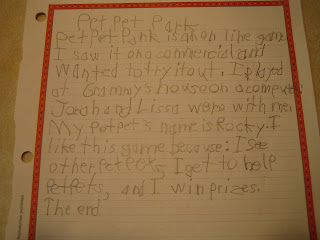 PetPet Park
PetPet Park is an on line game.
I saw it on a commercial and
wanted to try it out. I played
at Grammy's house on a computer
Jonah and Lissa were with me.
My PetPet's name is Rocky. I
like this game because: I see
other PetPets, I get to help
PetPets, and I win prizes.
The end